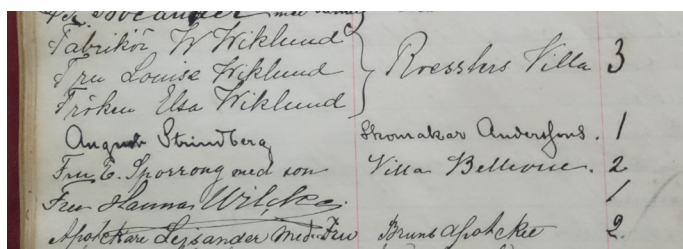 Fabrikör W Wiklund
Fru Louise Wiklund } Roesslers Villa 3
Fröken Elsa Wiklund
August Strindberg Skomakar Anderssons. 1
Fru E. Sporrong med son Villa Bellevue. 2
Fru Hanna Wilcke. 1
Apotekare Lejsander med Fru Bruns apotek 2.